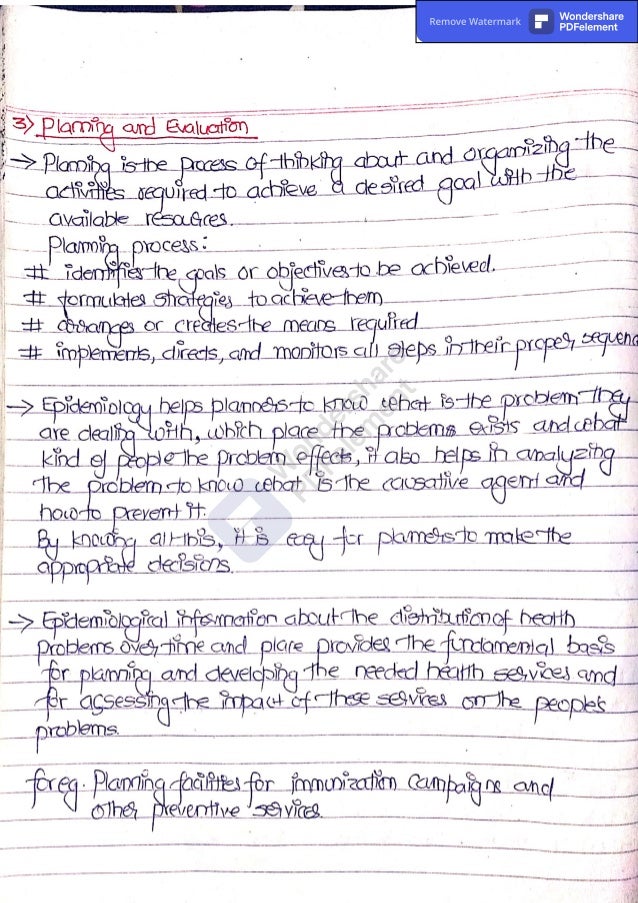 Remove Watermark
Wondershare
PDFelement
3) Planning and Evaluation
→ Planning is the process of thinking about and organizing the
activities required to achieve a desired goal with the
available resources.
Planning process:
# identifies the goals or objectives to be achieved.
# formulates strategies to achieve them
# arranges or creates the means required
# implements, directs, and monitors all steps in their proper sequenc
→ Epidemiology helps planners to know what is the problem they
are dealing with, which place the problems exists and what
kind of people the problem effects, it also helps in analyzing
the problem to know what is the causative agent and
how to prevent it.
By knowing all this, it is easy for planners to make the
appropriate decisions.
→ Epidemiological information about the distribution of health
problems over time and place provides the fundamental basis
for planning and developing the needed health services and
for assessing the impact of these services on the people's
problems.
for eg. Planning facilities for immunization campaigns and
other preventive services.
Wondershare
PDFelement